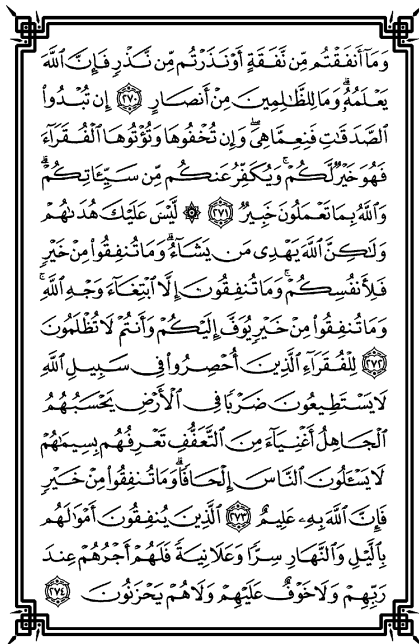 وَمَآ أَنفَقْتُم مِّن نَّفَقَةٍ أَوْ نَذَرْتُم مِّن نَّذْرٍ فَإِنَّ ٱللَّهَ
يَعْلَمُهُۥ ۗ وَمَا لِلظَّٰلِمِينَ مِنْ أَنصَارٍ ٢٧٠ إِن تُبْدُوا۟
ٱلصَّدَقَٰتِ فَنِعِمَّا هِىَ ۖ وَإِن تُخْفُوهَا وَتُؤْتُوهَا ٱلْفُقَرَآءَ
فَهُوَ خَيْرٌ لَّكُمْ ۚ وَيُكَفِّرُ عَنكُم مِّن سَيِّـَٔاتِكُمْ ۗ
وَٱللَّهُ بِمَا تَعْمَلُونَ خَبِيرٌ ٢٧١ ۞ لَّيْسَ عَلَيْكَ هُدَىٰهُمْ
وَلَٰكِنَّ ٱللَّهَ يَهْدِى مَن يَشَآءُ ۗ وَمَا تُنفِقُوا۟ مِنْ خَيْرٍ
فَلِأَنفُسِكُمْ ۚ وَمَا تُنفِقُونَ إِلَّا ٱبْتِغَآءَ وَجْهِ ٱللَّهِ ۚ
وَمَا تُنفِقُوا۟ مِنْ خَيْرٍ يُوَفَّ إِلَيْكُمْ وَأَنتُمْ لَا تُظْلَمُونَ
٢٧٢ لِلْفُقَرَآءِ ٱلَّذِينَ أُحْصِرُوا۟ فِى سَبِيلِ ٱللَّهِ
لَا يَسْتَطِيعُونَ ضَرْبًا فِى ٱلْأَرْضِ يَحْسَبُهُمُ
ٱلْجَاهِلُ أَغْنِيَآءَ مِنَ ٱلتَّعَفُّفِ تَعْرِفُهُم بِسِيمَٰهُمْ
لَا يَسْـَٔلُونَ ٱلنَّاسَ إِلْحَافًا ۗ وَمَا تُنفِقُوا۟ مِنْ خَيْرٍ
فَإِنَّ ٱللَّهَ بِهِۦ عَلِيمٌ ٢٧٣ ٱلَّذِينَ يُنفِقُونَ أَمْوَٰلَهُم
بِٱلَّيْلِ وَٱلنَّهَارِ سِرًّا وَعَلَانِيَةً فَلَهُمْ أَجْرُهُمْ عِندَ
رَبِّهِمْ وَلَا خَوْفٌ عَلَيْهِمْ وَلَا هُمْ يَحْزَنُونَ ٢٧٤